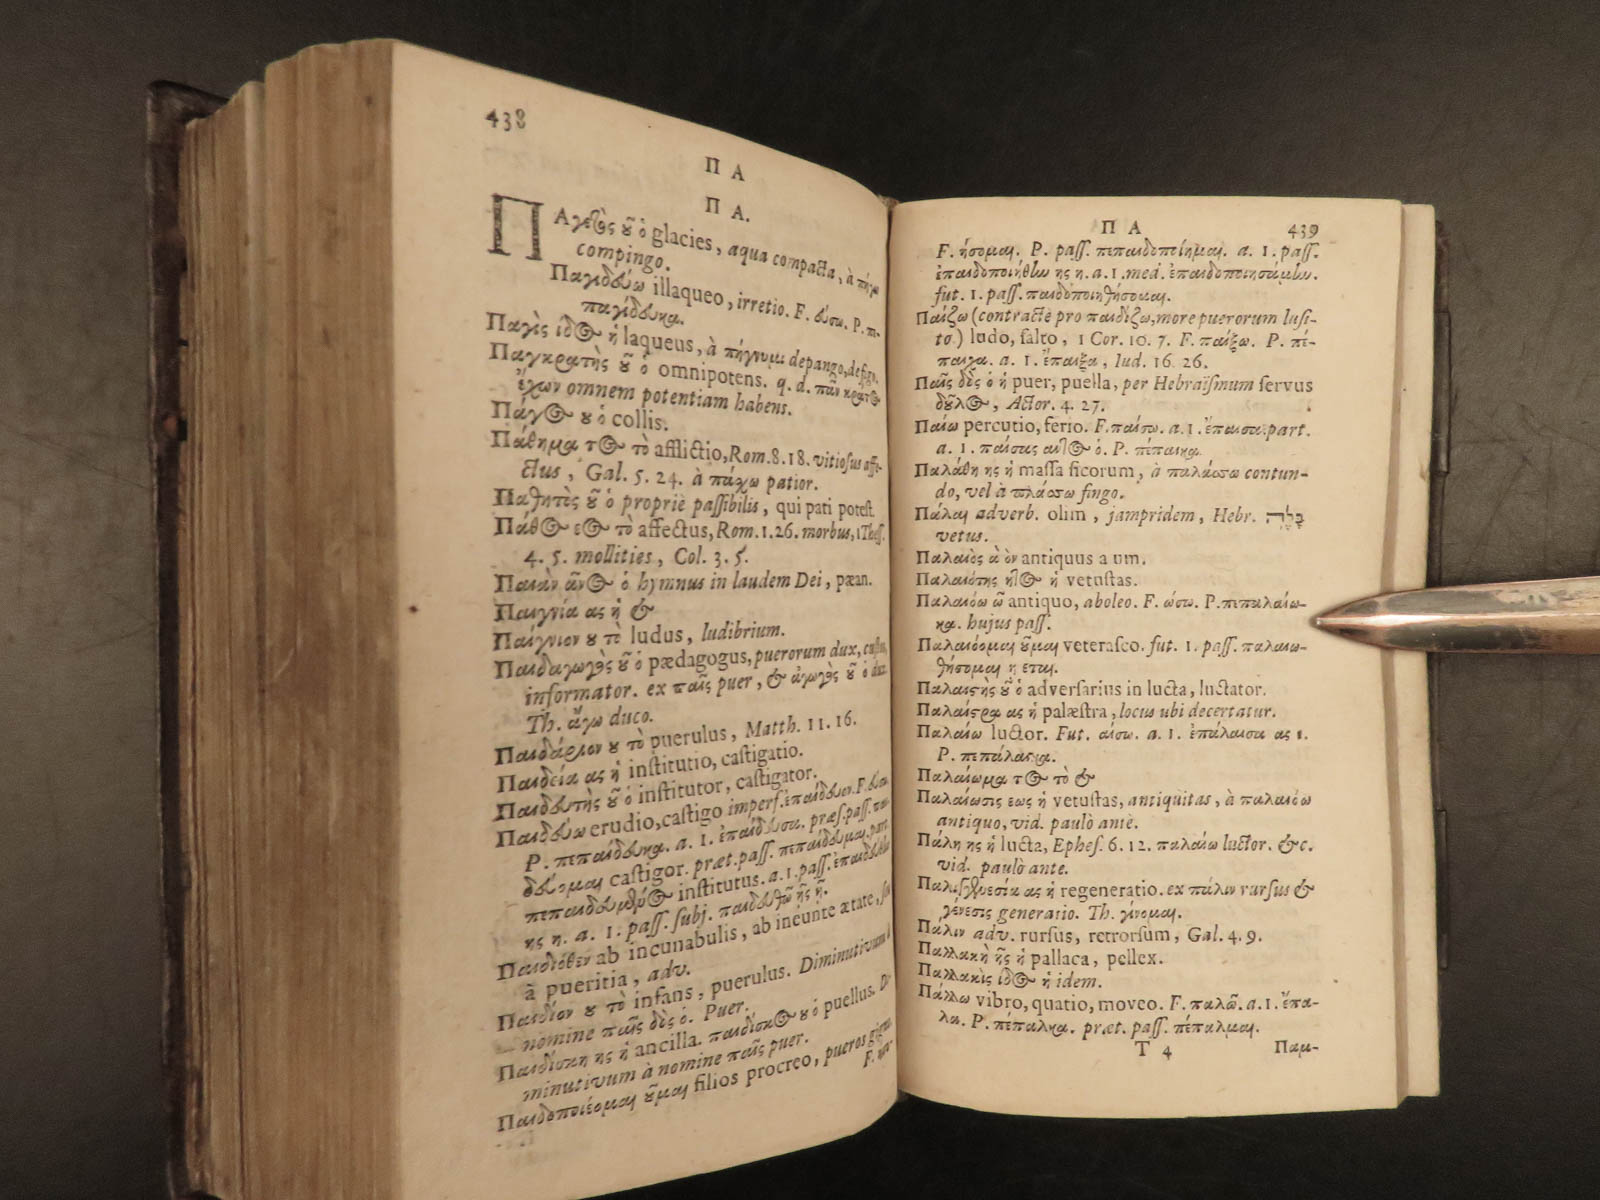 438
Π Α
Π Α.
ΠΑγετὸς ȣ͂ ὁ glacies, aqua compacta, à πήγω
compingo.
Παγιδεύω illaqueo, irretio. F. εύσω. P. πε-
παγίδευκα.
Παγὶς ίδος ἡ laqueus, à πήγνυμι depango, defigo.
Παγκρατὴς ȣ͂ ὁ omnipotens. q. d. πᾶν κράτος
ἔχων omnem potentiam habens.
Πάγος ȣ ὁ collis.
Πάθημα τος τὸ afflictio, Rom. 8. 18. vitiosus affe-
ctus, Gal. 5. 24. à πάχω patior.
Παθητὸς ȣ͂ ὁ propriè passibilis, qui pati potest
Πάθος εος τὸ affectus, Rom. 1. 26. morbus, 1 Thess.
4. 5. mollities, Col. 3. 5.
Παιὰν ᾶνος ὁ hymnus in laudem Dei, pæan.
Παιγνία ας ἡ &
Παίγνιον ȣ τὸ ludus, ludibrium.
Παιδαγωγὸς ȣ͂ ὁ pædagogus, puerorum dux, custos,
informator. ex παῖς puer, & ἀγωγὸς ȣ͂ ὁ dux.
Th. ἄγω duco.
Παιδάριον ȣ τὸ puerulus, Matth. 11. 16.
Παιδεία ας ἡ institutio, castigatio.
Παιδευτὴς ȣ͂ ὁ institutor, castigator.
Παιδεύω erudio, castigo imperf. ἐπαίδευον. F. εύσω
P. πεπαίδευκα. a. 1. ἐπαίδευσα. præs. pass. παι-
δεύομαι castigor. præt. pass. πεπαίδευμαι. part.
πεπαιδευμένος institutus. a. 1. pass. ἐπαιδεύθην
ης η. a. 1. pass. subj. παιδευθῶ ῇς ῇ.
Παιδιόθεν ab incunabulis, ab ineunte ætate,
à pueritia, adv.
Παιδίον ȣ τὸ infans, puerulus. Diminutivum à
nomine παῖς δὸς ὁ. Puer.
Παιδίσκη ης ἡ ancilla. παιδίσκος ȣ ὁ puellus. Di-
minutivum à nomine παῖς puer.
Παιδοποιέομαι ȣ͂μαι filios procreo, pueros gigno
F. ήσο-
Π Α 439
F. ήσομαι. P. pass. πεπαιδοποίημαι. a. 1. pass.
ἐπαιδοποιήθην ης η. a. 1. med. ἐπαιδοποιησάμην.
fut. 1. pass. παιδοποιηθήσομαι.
Παίζω (contractè pro παιδίζω, more puerorum lusi-
to.) ludo, salto, 1 Cor. 10. 7. F. παίξω. P. πέ-
παιχα. a. 1. ἔπαιξα, Iud. 16. 26.
Παῖς δὸς ὁ ἡ puer, puella, per Hebraïsmum servus
δȣ͂λος, Actor. 4. 27.
Παίω percutio, ferio. F. παίσω. a. 1. ἔπαισα. part.
a. 1. παίσας αντος ὁ. P. πέπαικα.
Παλάθη ης ἡ massa ficorum, à παλάσσω contun-
do, vel à πλάσσω fingo.
Πάλαι adverb. olim, jampridem, Hebr. בָּלָה
vetus.
Παλαιὸς ὰ ὸν antiquus a um.
Παλαιότης ητος ἡ vetustas.
Παλαιόω ῶ antiquo, aboleo. F. ώσω. P. πεπαλαίω-
κα. hujus pass.
Παλαιόομαι ȣ͂μαι veterasco. fut. 1. pass. παλαιω-
θήσομαι η εται.
Παλαιστὴς ȣ͂ ὁ adversarius in lucta, luctator.
Παλαίστρα ας ἡ palæstra, locus ubi decertatur.
Παλαίω luctor. Fut. αίσω. a. 1. ἐπάλαισα ας ε.
P. πεπάλαικα.
Παλαίωμα τος τὸ &
Παλαίωσις εως ἡ vetustas, antiquitas, à παλαιόω
antiquo, vid. paulò antè.
Πάλη ης ἡ lucta, Ephes. 6. 12. παλαίω luctor. &c.
vid. paulò ante.
Παλιγγενεσία ας ἡ regeneratio. ex πάλιν rursus &
γένεσις generatio. Th. γίνομαι.
Πάλιν adv. rursus, retrorsum, Gal. 4. 9.
Παλλακὴ ῆς ἡ pallaca, pellex.
Παλλακὶς ίδος ἡ idem.
Πάλλω vibro, quatio, moveo. F. παλῶ. a. 1. ἔπα-
λα. P. πέπαλκα. præt. pass. πέπαλμαι.
T 4 Παμ-